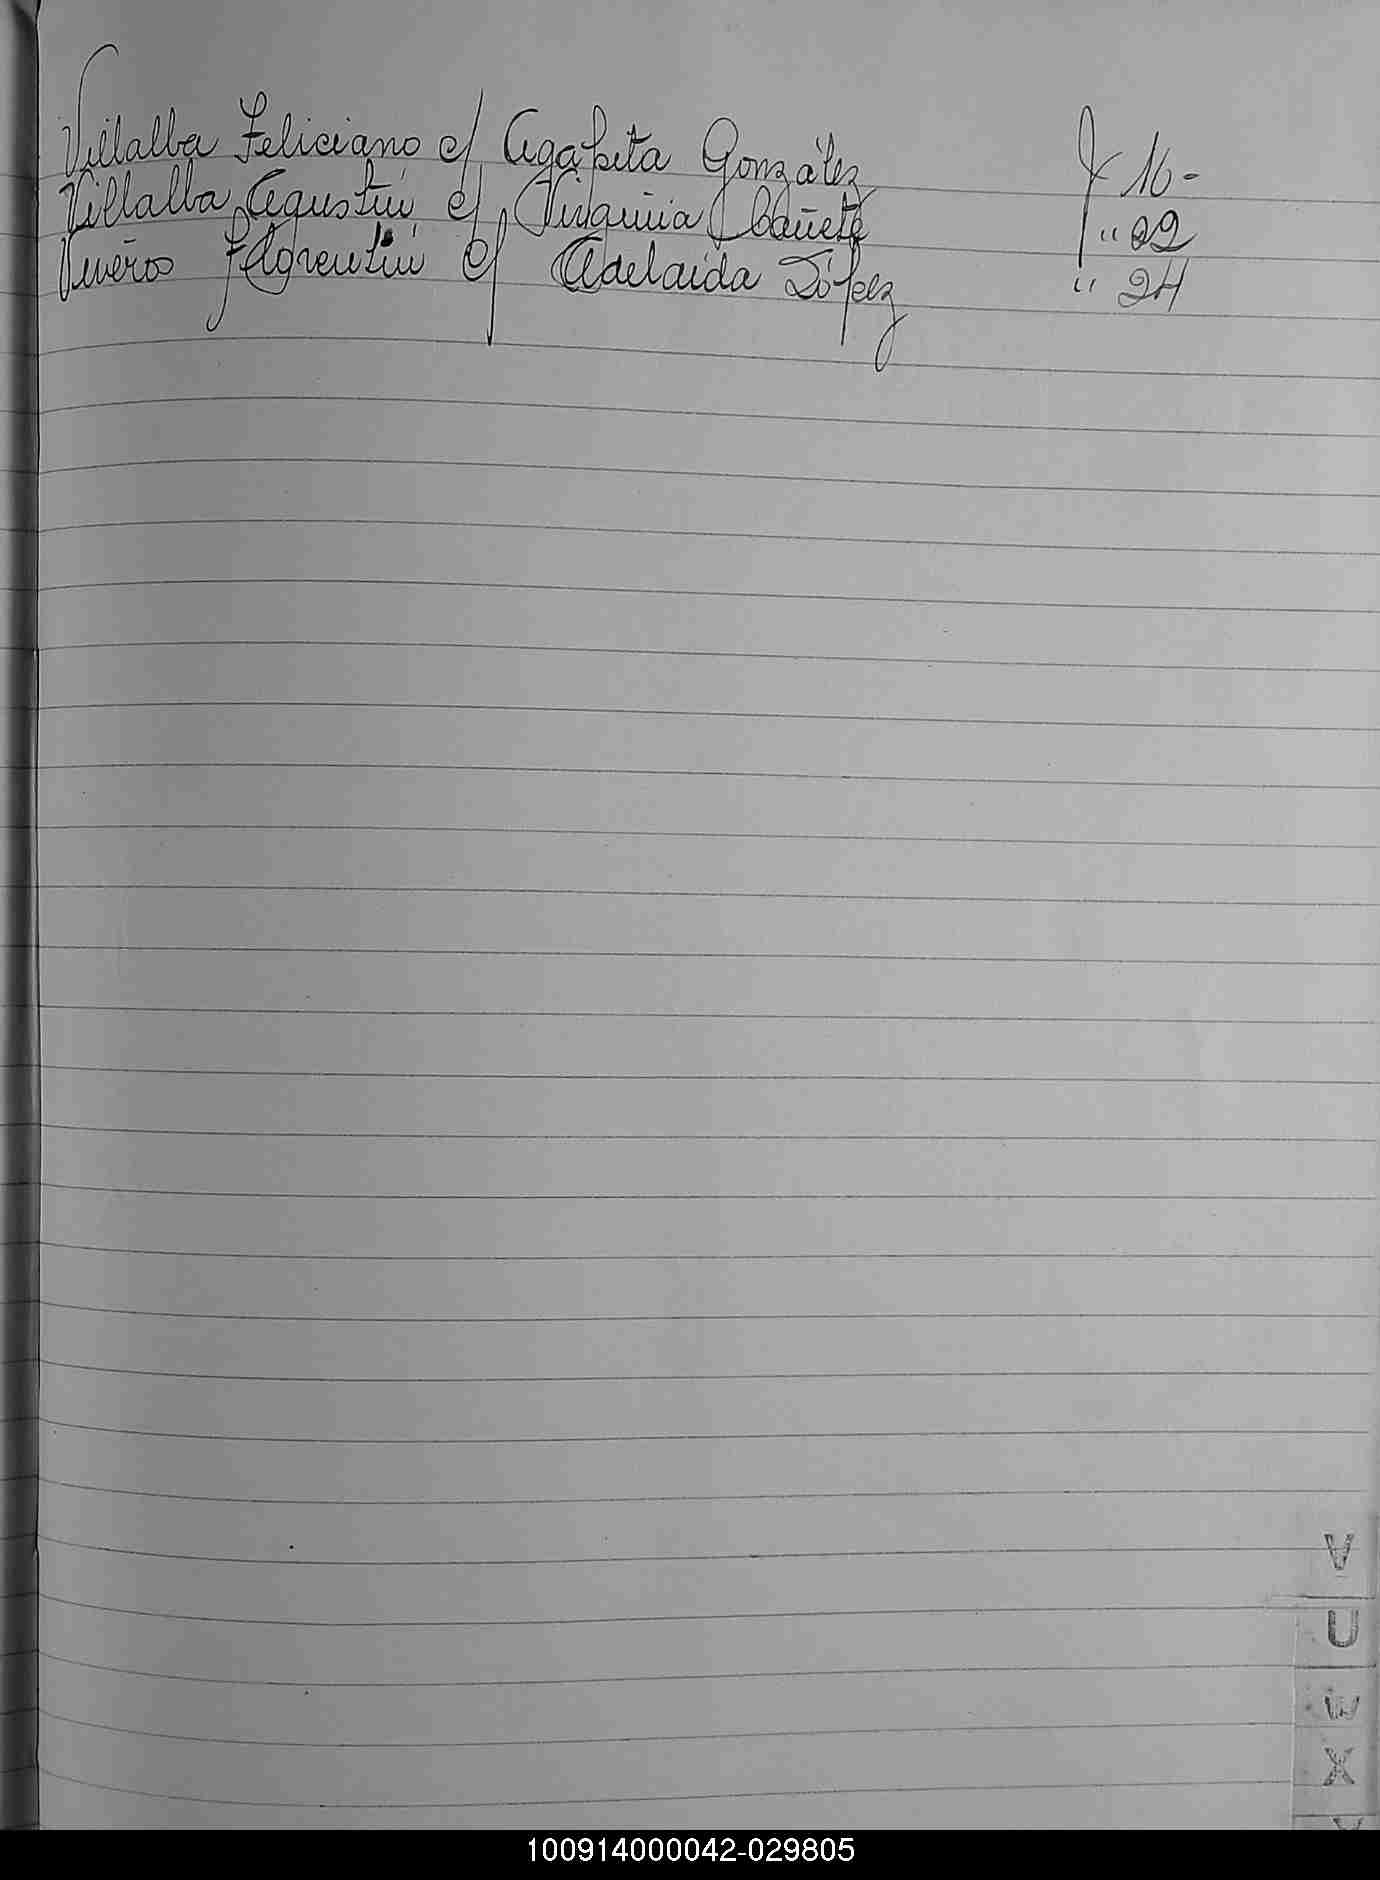 Villalba Feliciano c/ Agapita González f 16-
Villalba Agustín c/ Virginia Cañete " 22
Viveros Florentín c/ Adelaida López " 24
V
U
W
X
Y
100914000042-029805